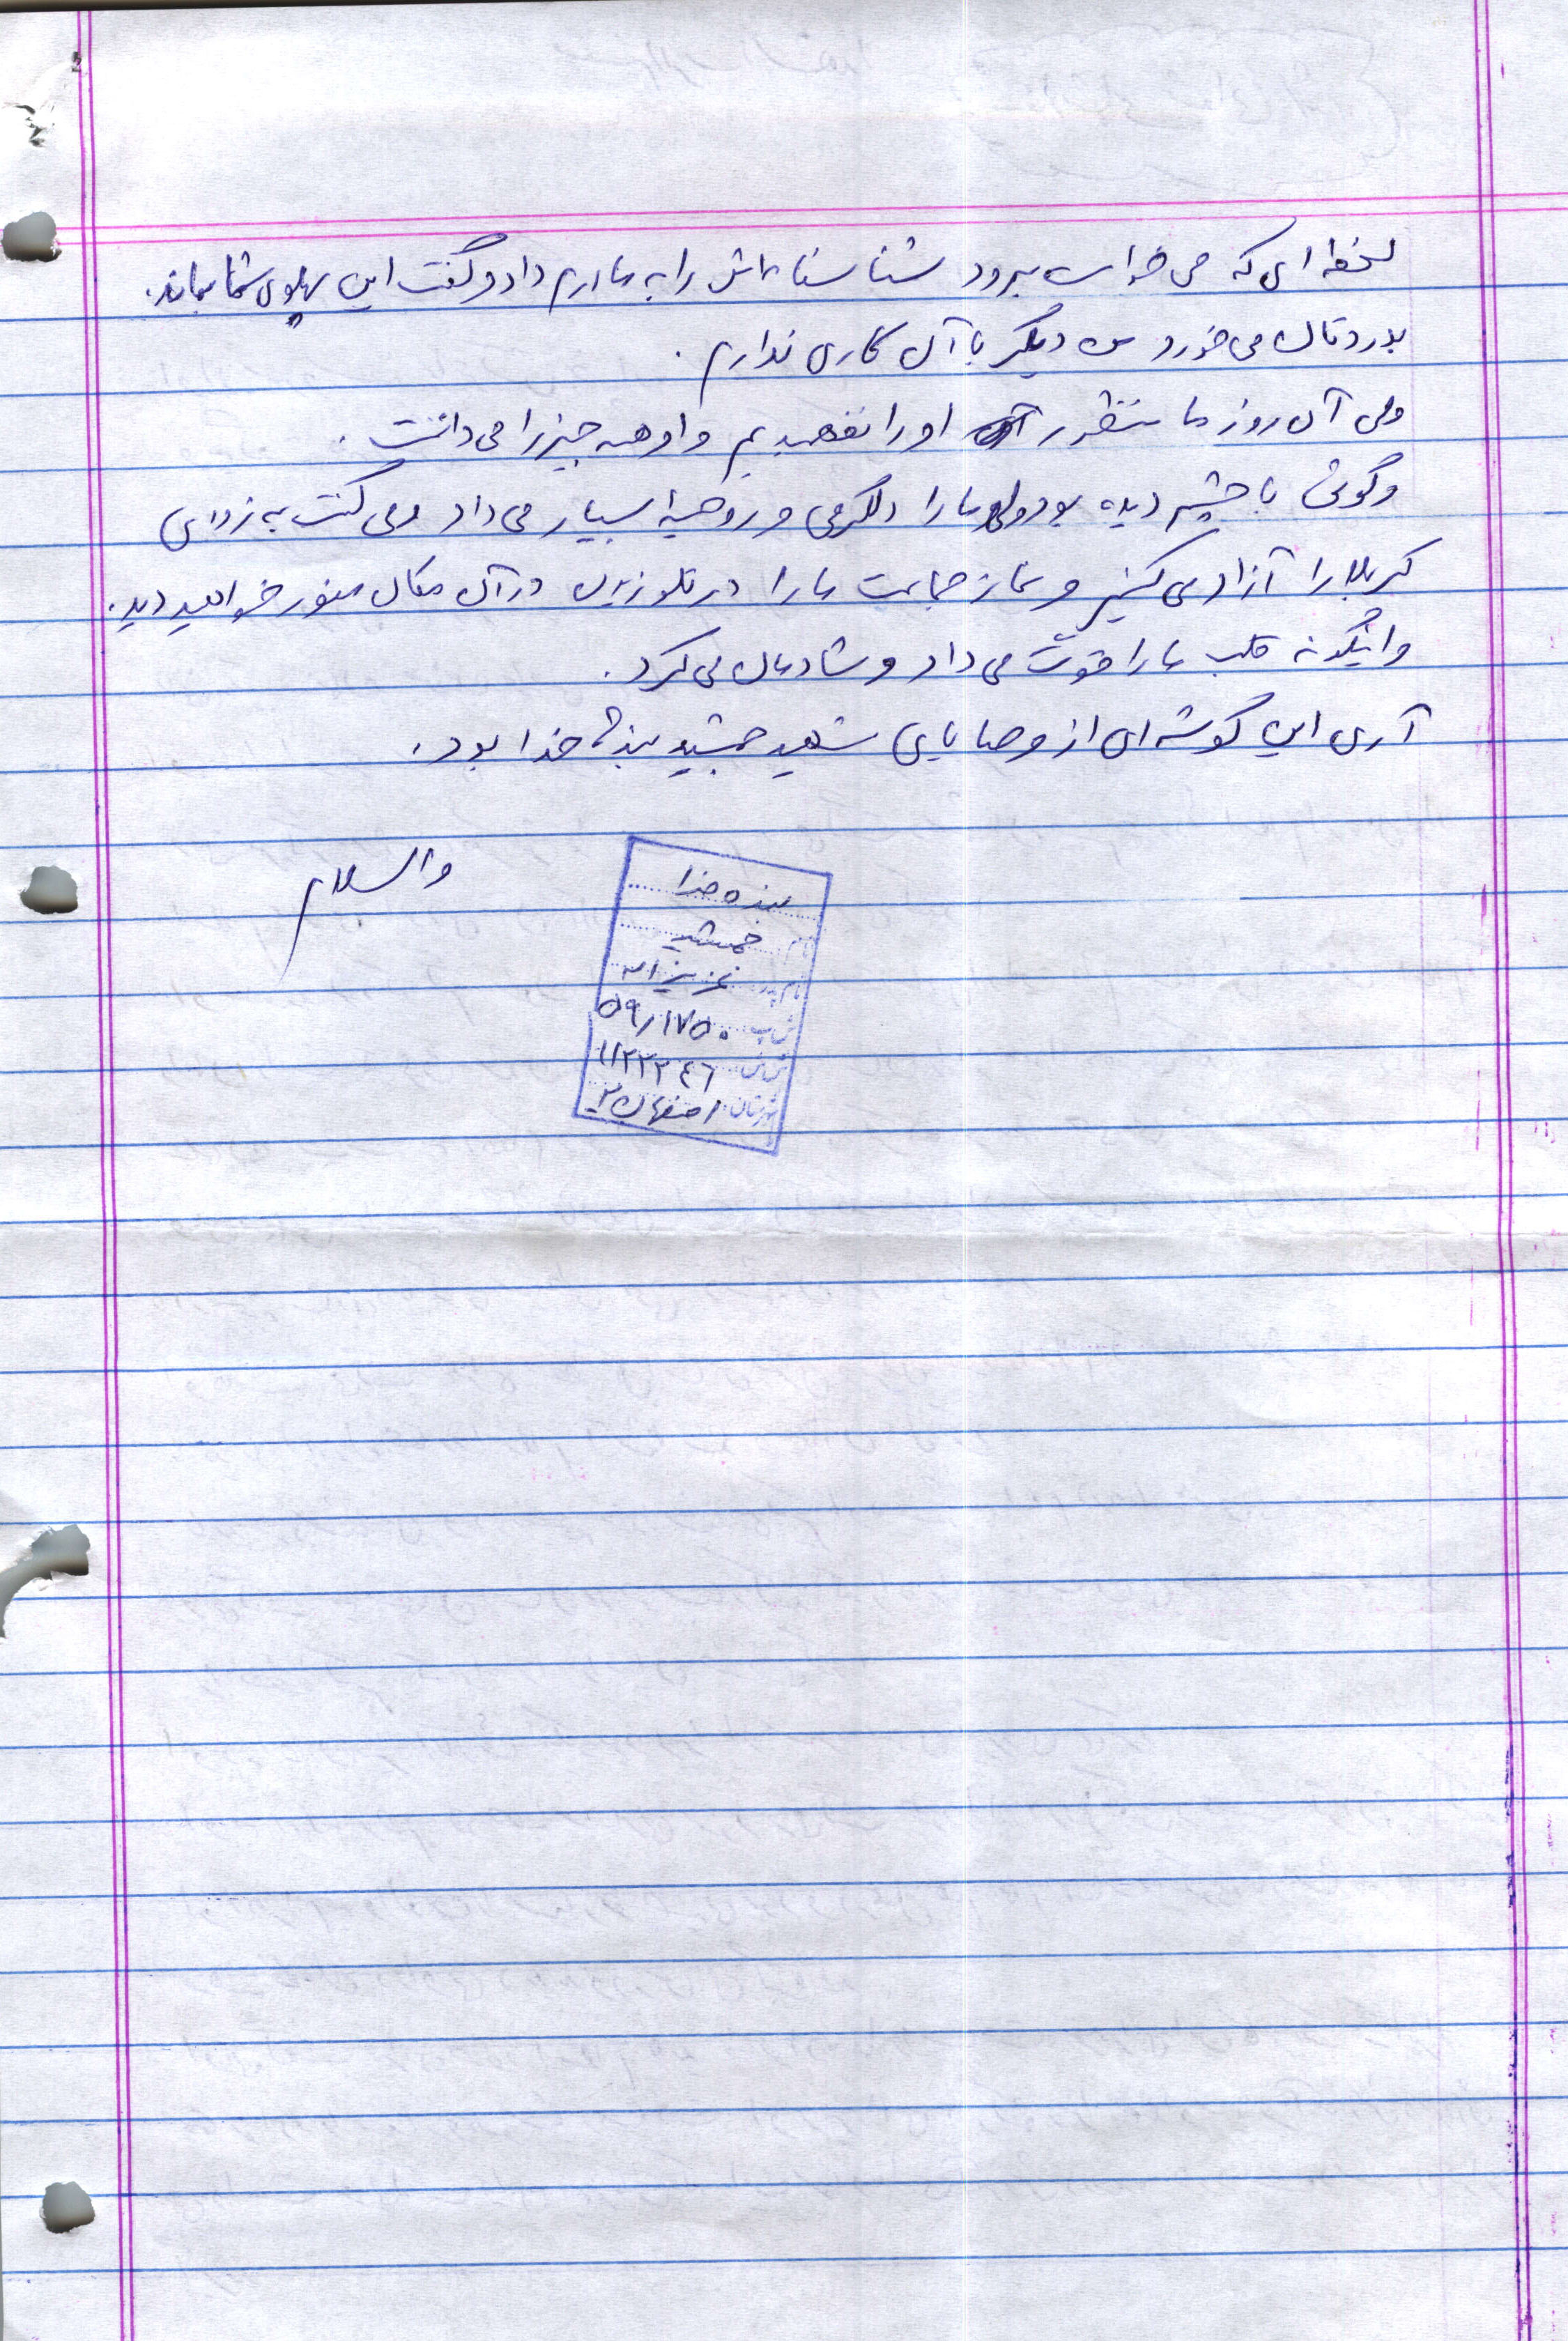 لحظه ای که می خواست برود شناسنامه اش را به مادرم داد و گفت این پهلوی شما بماند.
بدردتان می خورد من دیگر با آن کاری ندارم.
ولی آن روز ما منظور او را نفهمیدیم و او همه چیز را می دانست.
و گوئی با چشم دیده بود ولی ما را دلگرمی و روحیه بسیار می داد و می گفت به زودی
کربلا را آزاد می کنیم و نماز جماعت ما را در تلوزیون در آن مکان منور خواهید دید.
و اینگونه قلب ما را قوت می داد و شادمان می کرد.
آری این گوشه ای از وصایای شهید جمشید بنده خدا بود.
والسلام
بنده خدا
نام جمشید
نام پدر عزیزاله
ش پ ۵۹/۱۷۵۰
ش ش ۱۱۲۳۳۴۶
شهرستان اصفهان ۲